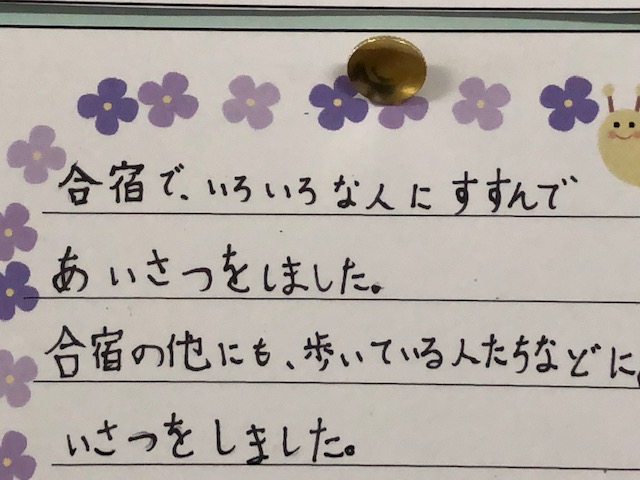 合宿で、いろいろな人にすすんで
あいさつをしました。
合宿の他にも、歩いている人たちなどに
いさつをしました。